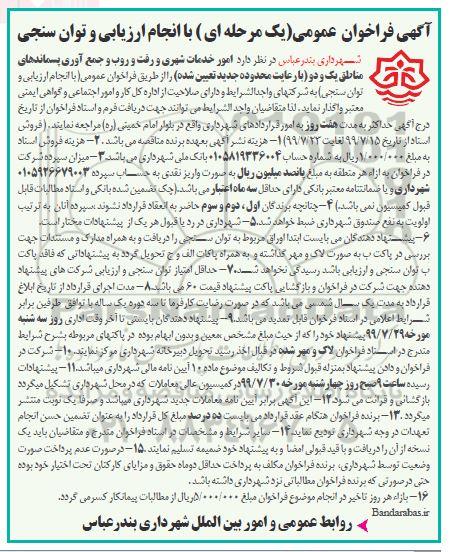 آگهی فراخوان عمومی(یک مرحله ای ) با انجام ارزیابی و توان سنجی
شــهرداری بندرعباس در نظر دارد امور خدمات شهری و رفت و روب و جمع آوری پسماندهای
مناطق یک و دو (با رعایت محدوده جدید تعیین شده) را از طریق فراخوان عمومی( با انجام ارزیابی و
توان سنجی) به شرکتهای واجدالشرایط و دارای صلاحیت از اداره کل کار و امور اجتماعی و گواهی ایمنی
معتبر واگذار نماید. لذا متقاضیان واجد الشرایط می توانند جهت دریافت فرم و اسناد فراخوان از تاریخ
درج آگهی حداکثر به مدت هفت روز به امور قراردادهای شهرداری واقع در بلوار امام خمینی (ره) مراجعه نمایند . (فروش
اسناد از تاریخ ۹۹/۷/۱۵ لغایت ۹۹/۷/۲۲) ۱- هزینه نشر آگهی بعهده برنده مناقصه می باشد . ۲- هزینه فروش اسناد
به مبلغ ۱/۰۰۰/۰۰۰ ریال به شماره حساب ۰۱۰۵۸۱۹۳۳۶۰۰۴ بانک ملی شهرداری می باشد.۳- میزان سپرده شرکت
در فراخوان به ازاء هر منطقه به مبلغ پانصد میلیون ریال به صورت واریز نقدی به حساب سپرده ۰۱۰۵۹۲۶۶۷۹۰۰۳
شهرداری و یا ضمانتنامه معتبر بانکی دارای حداقل سه ماه اعتبار می باشد.(چک تضمین شده بانکی و اسناد مطالبات قابل
قبول کمیسیون نمی باشد.) ۴-چنانچه برندگان اول ، دوم و سوم حاضر به انعقاد قرارداد نشوند ،سپرده آنان به ترتیب
اولویت به نفع صندوق شهرداری ضبط خواهد شد.۵- شهرداری در رد یا قبول هر یک از پیشنهادات مختار است.
۶- پیشــنهاد دهندگان می بایست ابتدا اوراق مربوط به توان ســنجی را دریافت و به همراه مدارک و مستندات جهت
بررسی در پاکت ب به صورت لاک و مهر گذاشته و به همراه پاکات الف و ج تحویل گردد به پیشنهاداتی که فاقد پاکت
ب توان سنجی و ارزیابی باشد رسیدگی نخواهد شــد.۷- حداقل امتیاز توان سنجی و ارزیابی شرکت های پیشنهاد
دهنده جهت شرکت در فراخوان و بازگشایی پاکت پیشنهاد قیمت ۶۰ می باشد.۸- مدت اجرای قرارداد از تاریخ ابلاغ
قرارداد به مدت یک ســال شمسی می باشد که در صورت رضایت کارفرما تا سه دوره یک ساله با توافق طرفین برابر
شرایط اعلامی در اسناد فراخوان قابل تمدید می باشد.۹- پیشنهاد دهندگان بایستی تا آخر وقت اداری روز سه شنبه
مورخه ۹۹/۷/۲۹ پیشنهاد خود را که از حیث مبلغ مشخص ،معین و بدون ابهام بوده در پاکتهای مربوطه بشرح شرایط
مندرج در اسـناد فراخوان لاک و مهر شده در قبال اخذ رسید تحویل دبیرخانه شهرداری مرکز نمایند.۱۰- شرکت در
فراخوان و دادن پیشنهاد بمنزله قبول شروط و تکالیف موضوع ماده ۱۰ آیین نامه مالی شهرداری میباشد.۱۱- پیشنهادات
رسیده ساعت ۹ صبح روز چهارشنبه مورخه ۹۹/۷/۳۰ در کمیسیون عالی معاملات که در محل شهرداری تشکیل میگردد
بازگشایی و قرائت می شود.۱۲- این آگهی برابر آیین نامه معاملات جدید شهرداری میباشد و صرفا یک نوبت منتشر
میگردد .۱۳- برنده فراخوان هنگام عقد قرارداد می بایست ده درصد مبلغ کل قرارداد را به عنوان تضمین حسن انجام
تعهدات در وجه شهرداری تودیع نماید ۱۴- سایر شرایط و مشخصات در اسناد فراخوان مندرج و متقاضیان باید یک
نسخه از آن را دریافت و با قید قبولی امضا و به پیشنهاد خود ضمیمه تسلیم نمایند.۱۵-درصورت عدم پرداخت صورت
وضعیت توسط شهرداری، برنده فراخوان مکلف به پرداخت حداقل دوماه حقوق و مزایای کارکنان تحت اختیار خود بوده
حتی درصورتی که برنده فراخوان مطالباتی نزد شهرداری داشته باشد .
۱۶- بازاء هر روز تاخیر در انجام موضوع فراخوان مبلغ ۵/۰۰۰/۰۰۰ ریال از مطالبات پیمانکار کسر می گردد.
Bandarabas.ir
روابط عمومی و امور بین الملل شهرداری بندرعباس